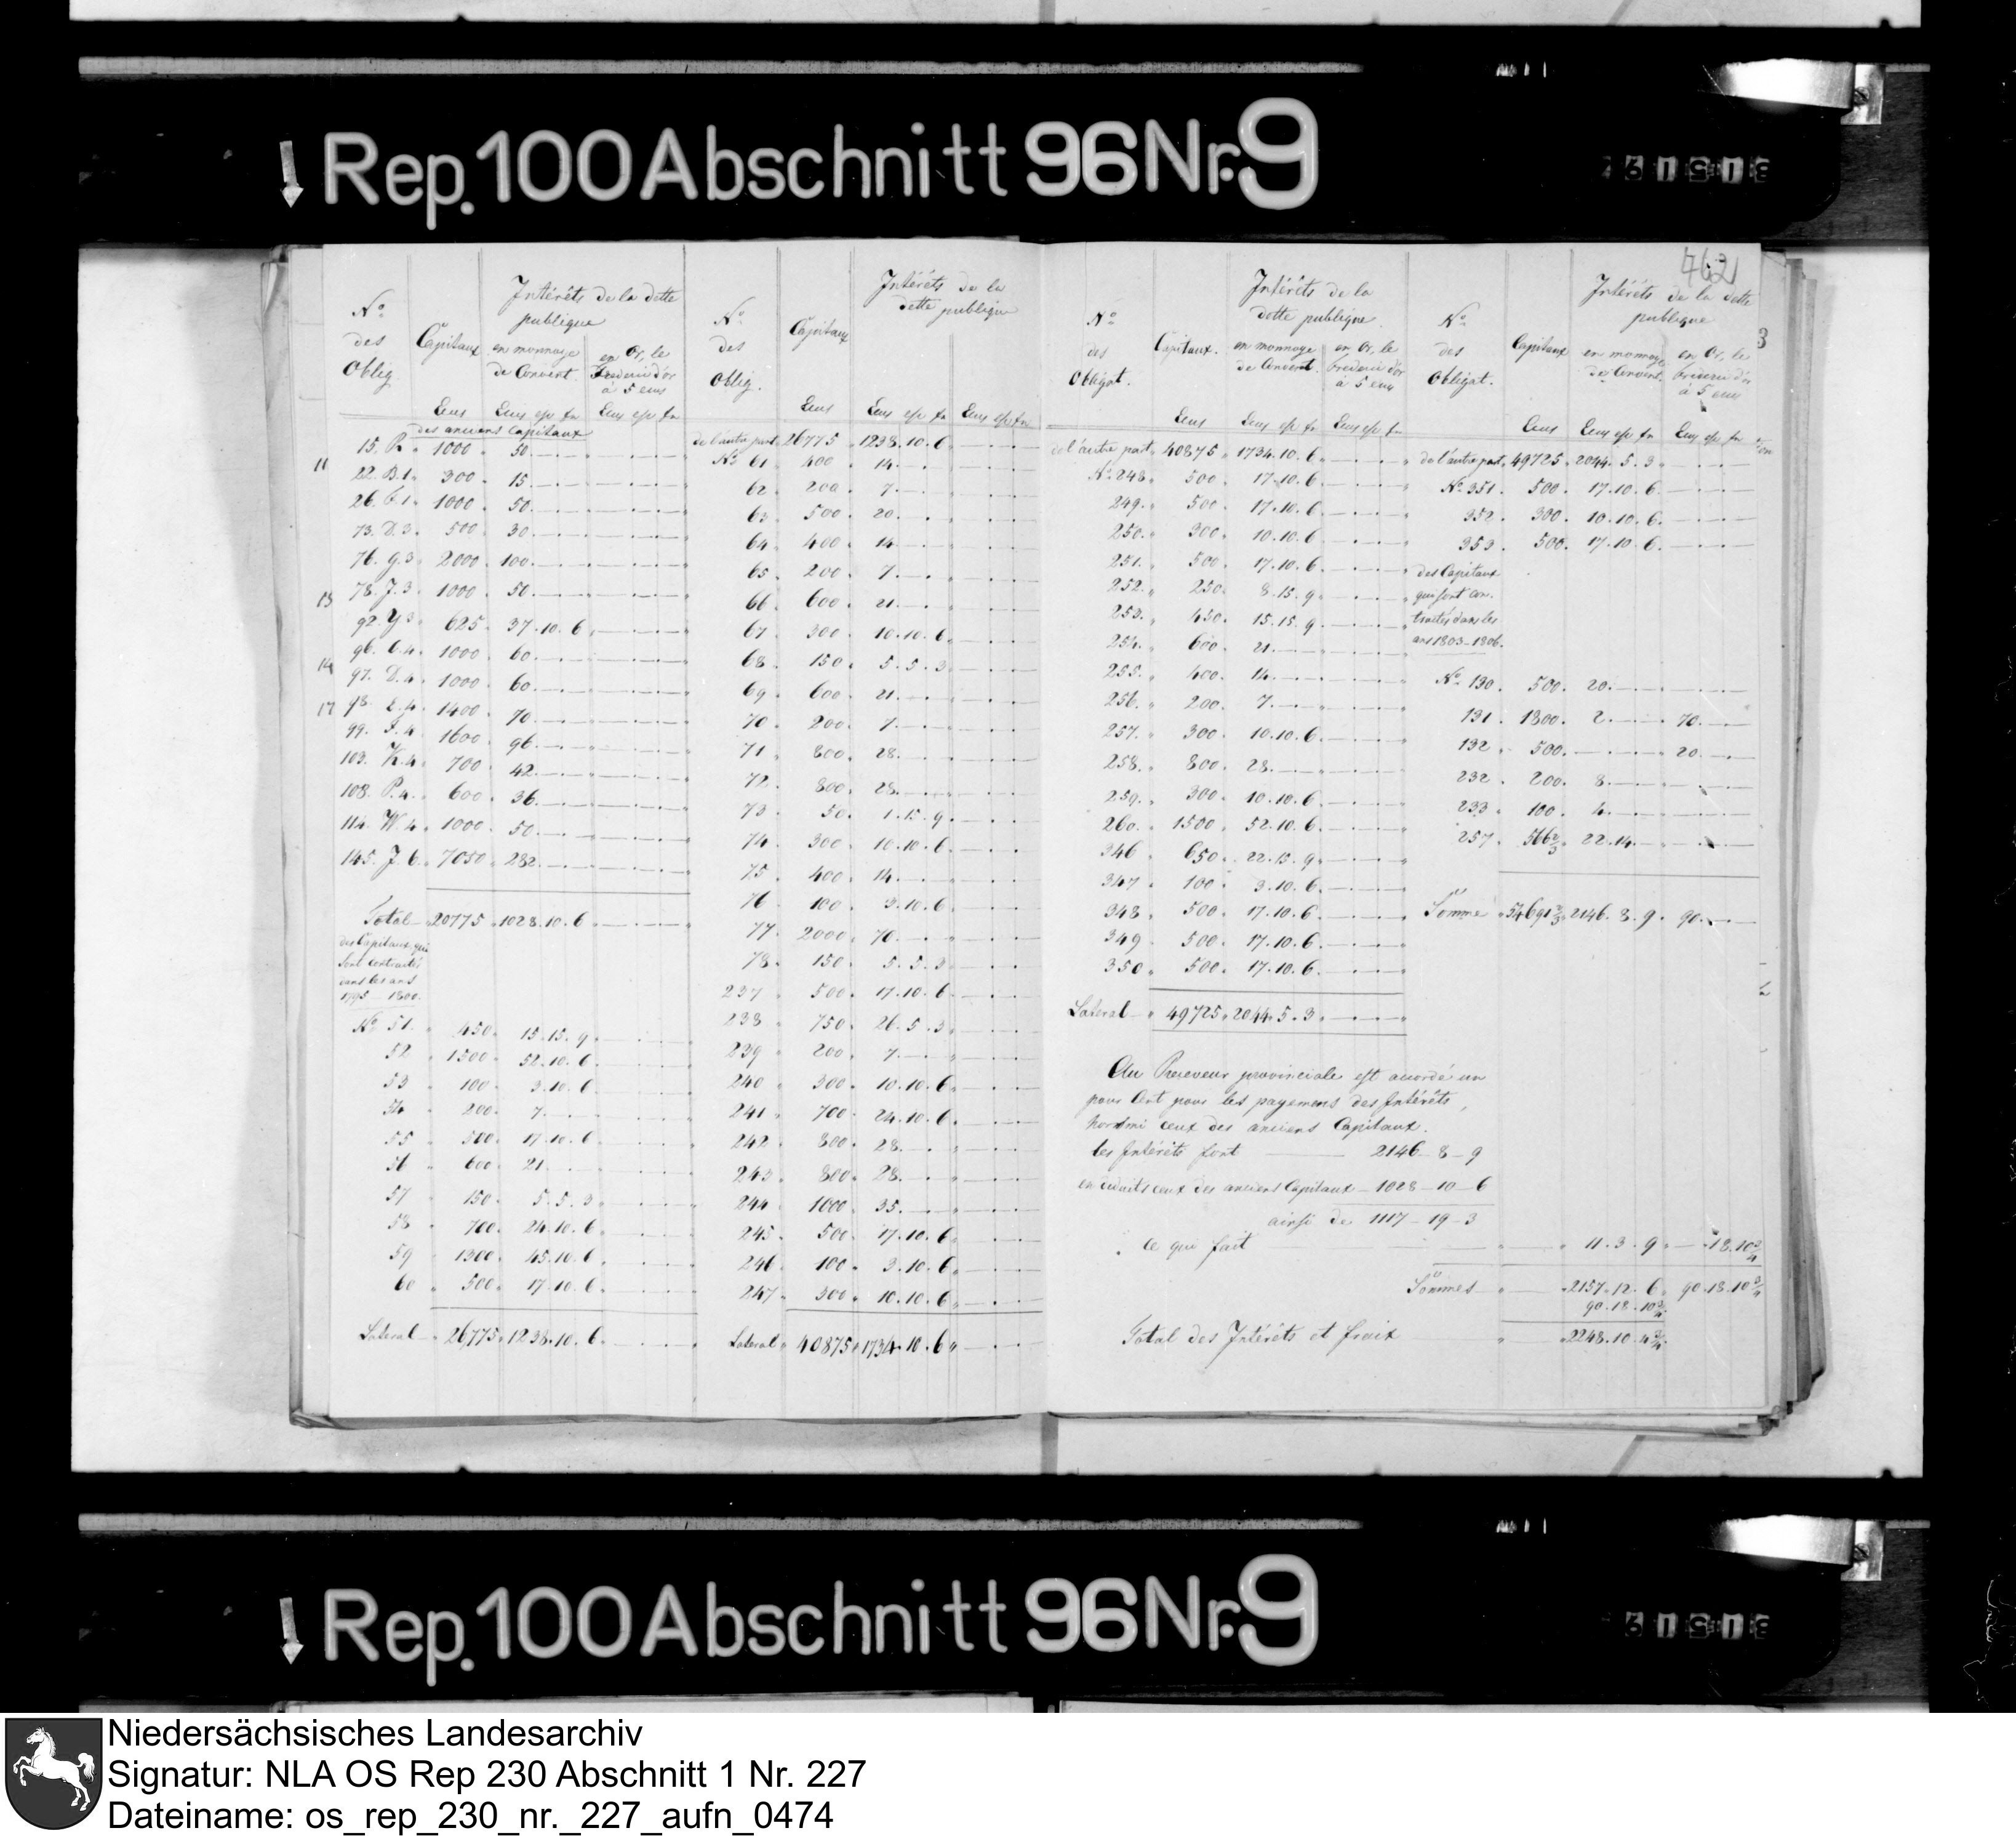 Rep. 100 Abschnitt 96 Nr. 9
462
3
No des Oblig. Capitaux Intérêts de la dette publique
en monnoye de Convent. en Or, le frederic d'or à 5 ecus
Ecus Ecus esp fn Ecus esp fn
des anciens Capitaux
15. R. 1000. 50.
22. B.1. 300. 15.
26. F.1. 1000. 50.
73. D.3. 500. 30.
76. G.3. 2000. 100.
78. J.3. 1000. 50.
92. Y.3. 625. 37. 10. 6.
96. C.4. 1000. 60.
97. D.4. 1000. 60.
98. E.4. 1400. 70.
99. F.4. 1600. 96.
103. K.4. 700. 42.
108. P.4. 600. 36.
114. W.4. 1000. 50.
145. J.6. 7050. 282.
Total 20775. 1028. 10. 6.
des Capitaux qui
sont contractés
dans les ans
1795 - 1800.
No 51. 450. 15. 15. 9.
52. 1500. 52. 10. 6.
53. 100. 3. 10. 6.
54. 200. 7.
55. 500. 17. 10. 6.
56. 600. 21.
57. 150. 5. 5. 3.
58. 700. 24. 10. 6.
59. 1300. 45. 10. 6.
60. 500. 17. 10. 6.
Lateral 26775. 1238. 10. 6.
No des Oblig. Capitaux Intérêts de la dette publique
Ecus Ecus esp fn Ecus esp fn
de l'autre part 26775. 1238. 10. 6.
No 61. 400. 14.
62. 200. 7.
63. 500. 20.
64. 400. 14.
65. 200. 7.
66. 600. 21.
67. 300. 10. 10. 6.
68. 150. 5. 5. 3.
69. 600. 21.
70. 200. 7.
71. 800. 28.
72. 800. 28.
73. 50. 1. 15. 9.
74. 300. 10. 10. 6.
75. 400. 14.
76. 100. 3. 10. 6.
77. 2000. 70.
78. 150. 5. 5. 3.
237. 500. 17. 10. 6.
238. 750. 26. 5. 3.
239. 200. 7.
240. 300. 10. 10. 6.
241. 700. 24. 10. 6.
242. 800. 28.
243. 800. 28.
244. 1000. 35.
245. 500. 17. 10. 6.
246. 100. 3. 10. 6.
247. 300. 10. 10. 6.
Lateral 40875. 1734. 10. 6.
No des Obligat. Capitaux. Intérêts de la dette publique.
en monnoye de Convent. en Or, le frederic d'or à 5 ecus
Ecus Ecus esp fn Ecus esp fn
de l'autre part 40875. 1734. 10. 6.
No 248. 500. 17. 10. 6.
249. 500. 17. 10. 6.
250. 300. 10. 10. 6.
251. 500. 17. 10. 6.
252. 250. 8. 15. 9.
253. 450. 15. 15. 9.
254. 600. 21.
255. 400. 14.
256. 200. 7.
257. 300. 10. 10. 6.
258. 800. 28.
259. 300. 10. 10. 6.
260. 1500. 52. 10. 6.
346. 650. 22. 15. 9.
347. 100. 3. 10. 6.
348. 500. 17. 10. 6.
349. 500. 17. 10. 6.
350. 500. 17. 10. 6.
Lateral 49725. 2044. 5. 3.
No des Obligat. Capitaux Intérêts de la dette publique
en monnoye de Convent. en Or, le frederic d'or à 5 ecus
Ecus Ecus esp fn Ecus esp fn
de l'autre part 49725. 2044. 5. 3.
No 351. 500. 17. 10. 6.
352. 300. 10. 10. 6.
353. 500. 17. 10. 6.
des Capitaux
qui sont con-
tractés dans les
ans 1803-1806.
No 130. 500. 20.
131. 1800. 2. 70.
132. 500. 20.
232. 200. 8.
233. 100. 4.
257. 566 2/3. 22. 14.
Somme 54691 2/3. 2146. 8. 9. 90.
Au Receveur provinciale est accordé un
pour Cent pour les payemens des Intérêts,
hormi ceux des anciens Capitaux.
les Intérêts sont 2146 - 8 - 9
en deduits ceux des anciens Capitaux - 1028 - 10 - 6
ainsi de 1117 - 19 - 3
ce qui fait 11. 3. 9. 18. 10 3/4
Sommes 2157. 12. 6. 90. 18. 10 3/4
90. 18. 10 3/4
Total des Intérêts et fraix 2248. 10. 4 3/4
Rep. 100 Abschnitt 96 Nr. 9
Niedersächsisches Landesarchiv
Signatur: NLA OS Rep 230 Abschnitt 1 Nr. 227
Dateiname: os_rep_230_nr._227_aufn_0474